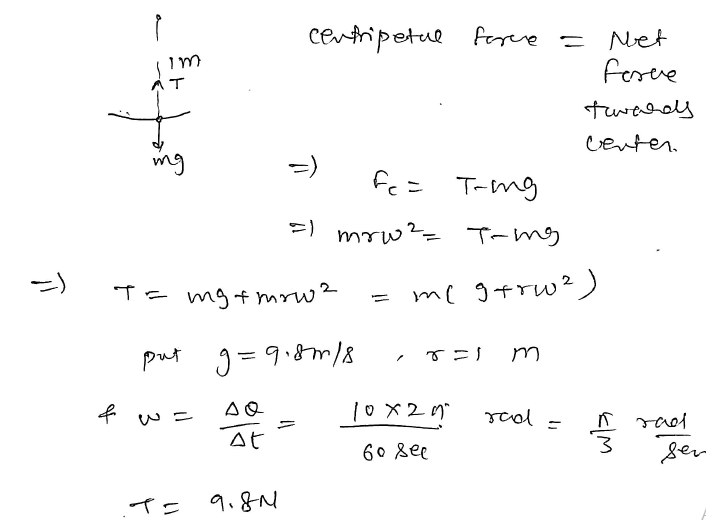 centripetal force = Net
force
towards
center.
1m
T
mg
=) fc = T-mg
=) mrw² = T-mg
=) T = mg + mrw² = m( g+rw² )
put g = 9.8m/s , r = 1 m
& w = Δθ/Δt = 10 x 2π/60 sec rad = π/3 rad/sec
T = 9.8N